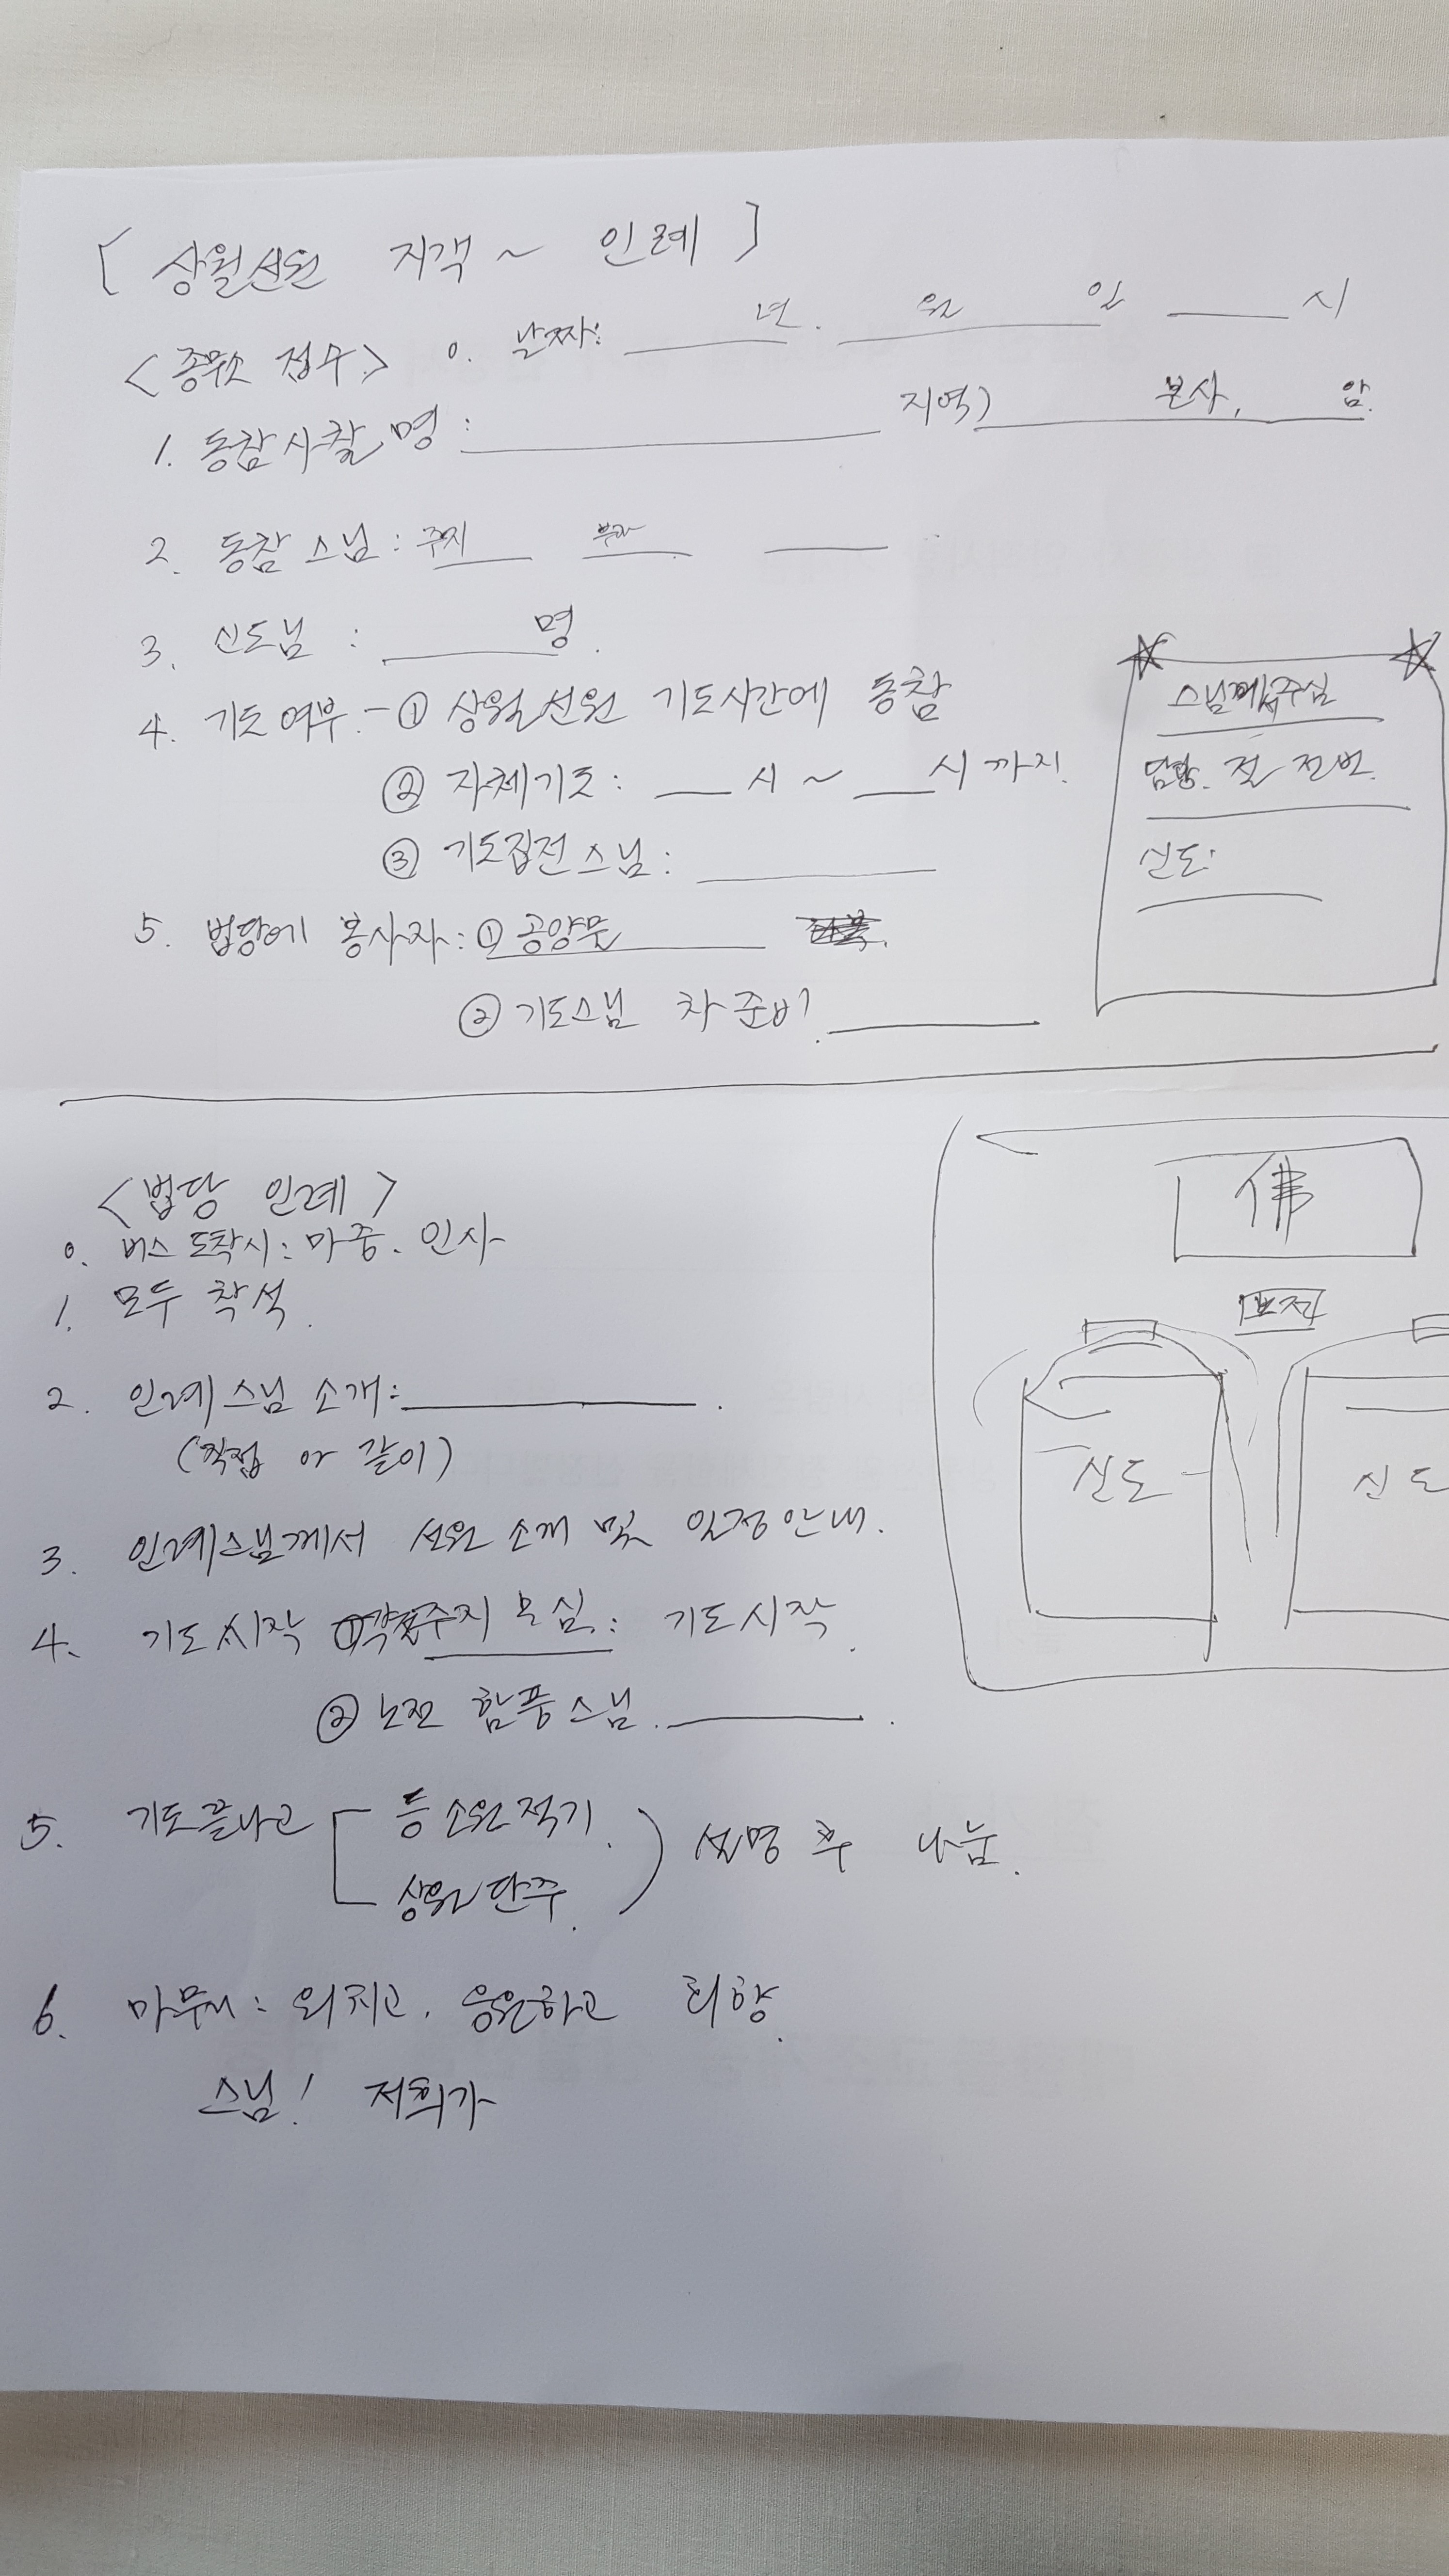 [ 상월선원 지객 ~ 인례 ]
<종무소 접수> 0. 날짜: ______ 년. ______ 월 ______ 일 ______ 시
1. 동참사찰명 : ______ 지역) ______ 본사, ______ 암.
2. 동참 스님 : 주지 ______ ______ ______
3. 신도님 : ______ 명.
4. 기도여부 - ① 상월선원 기도시간에 동참
② 자체기도 : ___ 시 ~ ___ 시 까지.
③ 기도집전스님 : ______
스님께서 주실
전번.
신도:
5. 법당에 봉사자 : ① 공양물 ______
② 기도스님 차 준비 ______
<법당 인례>
0. 버스 도착시 : 마중. 인사
1. 모두 착석.
2. 인례스님 소개 : ______.
(직접 or 같이)
3. 인례스님께서 선원 소개 및 일정안내.
4. 기도시작 ① 주지 : 기도시작.
② 노전 함풍스님. ______.
5. 기도끝나고 [ 등 소원적기.
상월단주. ) 설명 후 나눔.
6. 마무리 : 외치고, 응원하고 회향.
스님! 저희가
佛
신도
신도